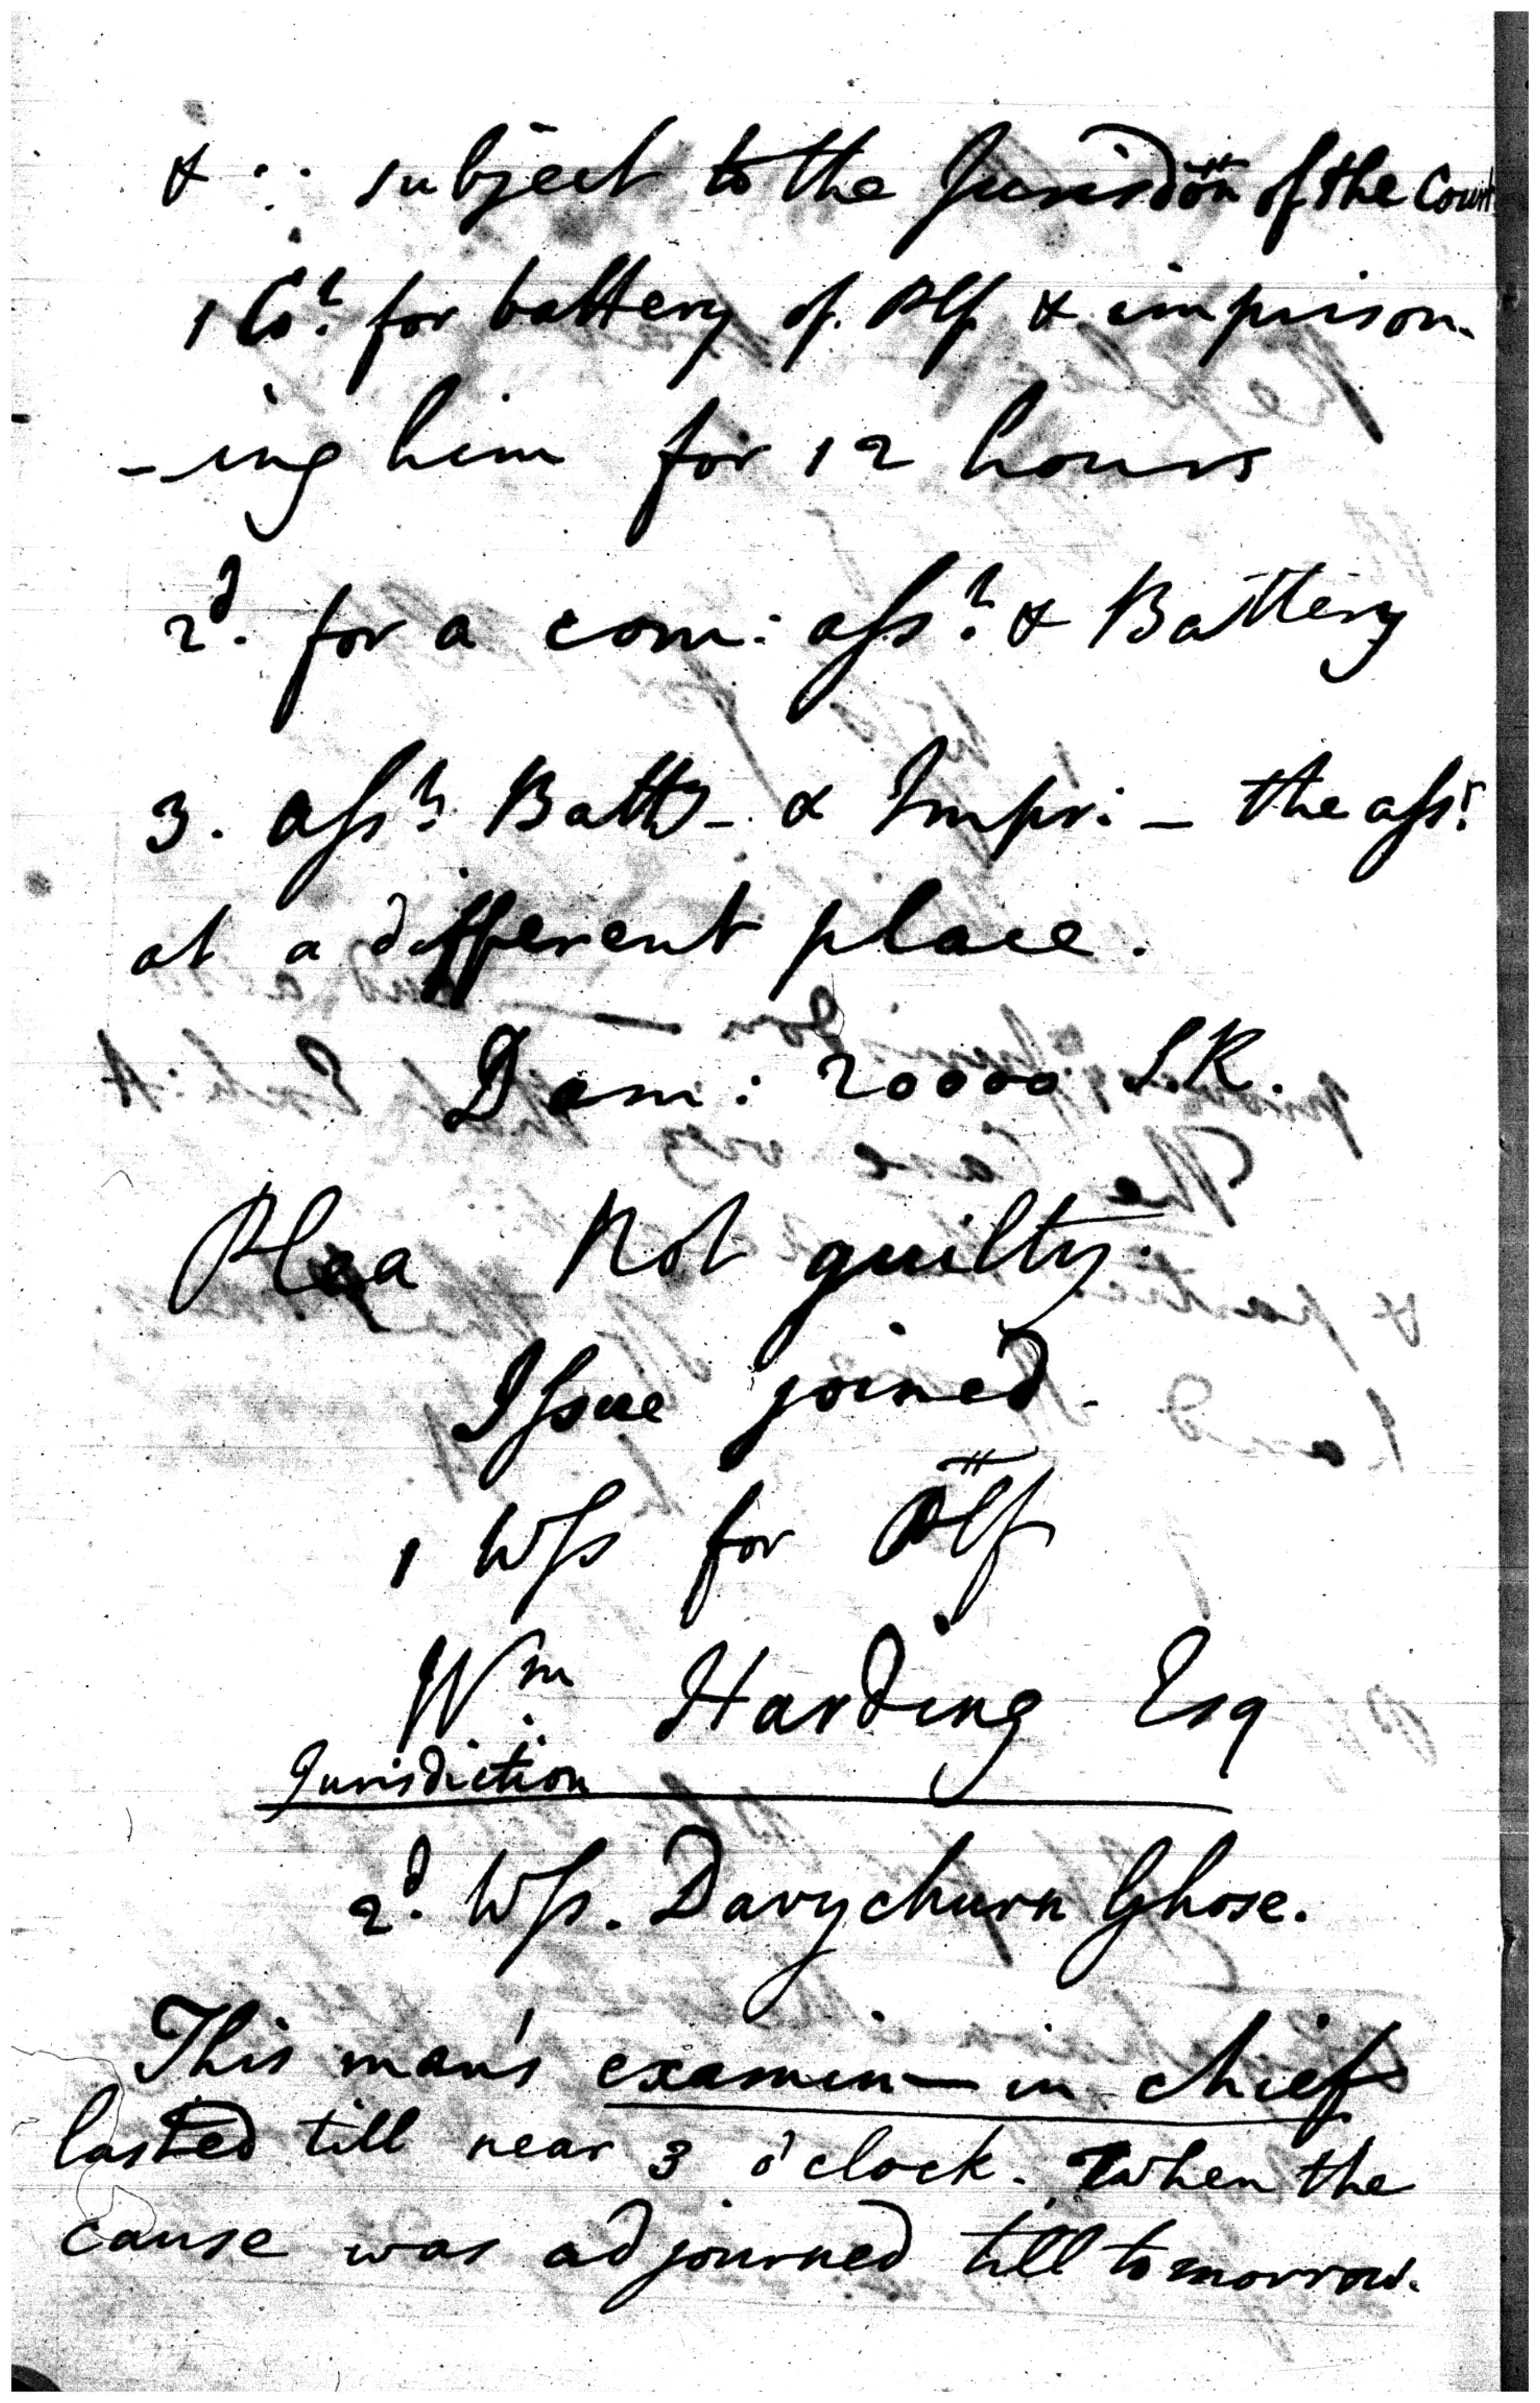 & ∴ subject to the Jurisdön of the Court
1 Co.t for battery of Plf & imprison-
-ing him for 12 hours
2d. for a com: asst. & Battery
3. asst. Batty - & Impr: - the asst.
at a different place.
Dam: 20000 S.R.
Plea Not guilty.
Issue joined.
1 Wss for Plf
Wm. Harding Esq
Jurisdiction
2d. Wss. Davychurn Ghose.
This man's examin— in chief
lasted till near 3 o'clock. When the
cause was adjourned till tomorrow.